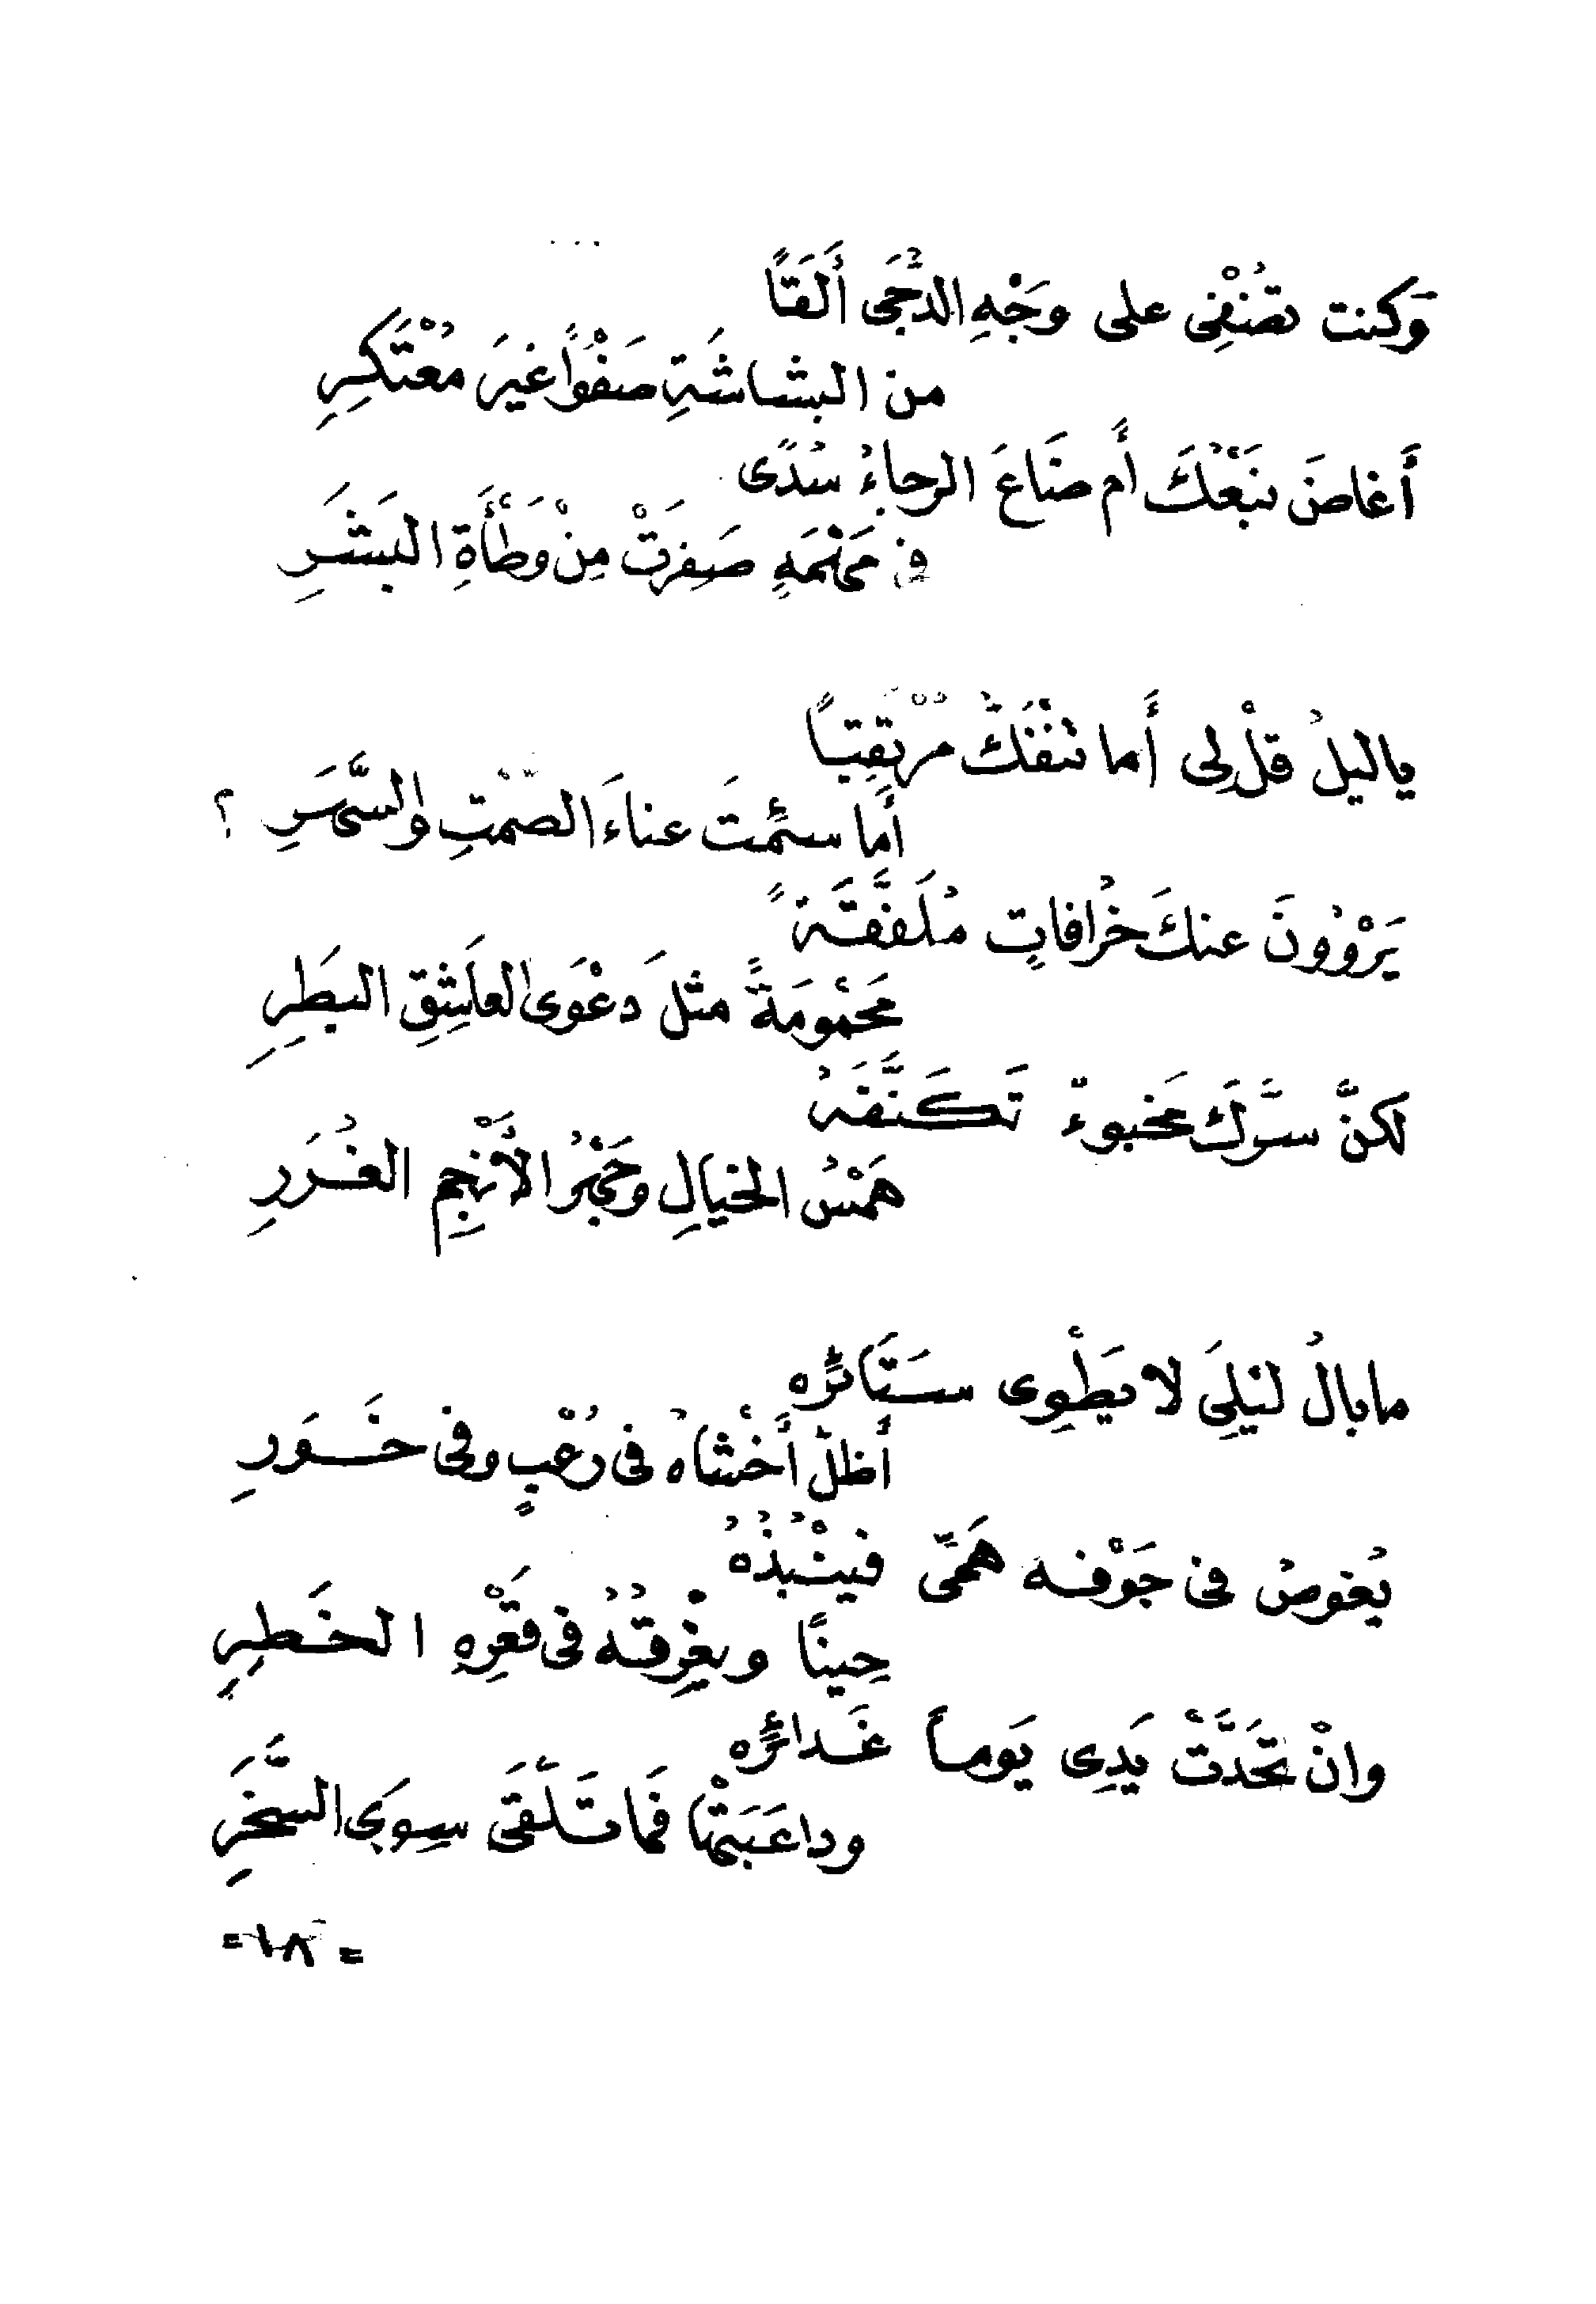 وَكنت تضْفِى على وَجْهِ الدُّجَى أَلَقًا
من البشاشَةِ صَفْوًا غيرَ مُعْتَكِرِ
أَغاضَ نَبْعُكَ أَم ضَاعَ الرجاءُ سُدًى
فى مَحْمَهٍ صَفِرَتْ مِنْ وَطْأَةِ البَشَرِ
ياليلُ قلْ لِى أَما تنْفَكُّ مُرْتَقِبًا
أَما سئِمتَ عناءَ الصَّمْتِ والسَّهَرِ ؟
يَرْوُونَ عنكَ خُرافاتٍ مُلَفَّقَةً
مَحْمُومَةً مثلَ دَعْوَى العاشِقِ البَطِرِ
لكنَّ سرَّكَ مَخبوءٌ تَكَنَّفَهُ
هَمْسُ الخيالِ وَحَجْرُ الأَنْجِمِ الغُرَرِ
مابالُ لَيْلِىَ لا يَطْوِى سَتَائرَه
أَظلُّ أَخْشاهُ فى رُعْبٍ وفى خَوَرِ
يَغوصُ فى جَوْفه هَمِّى فينْبُذُهُ
حِينًا ويغْرِقُهُ فى قَعْرِهِ الخَطِرِ
وانْ تَحَدَّتْ يَدِى يَوماً غَدائرَه
وداعَبَتْها فَما تَلْقَى سِوَى السَّخَرِ
= ١٨ =